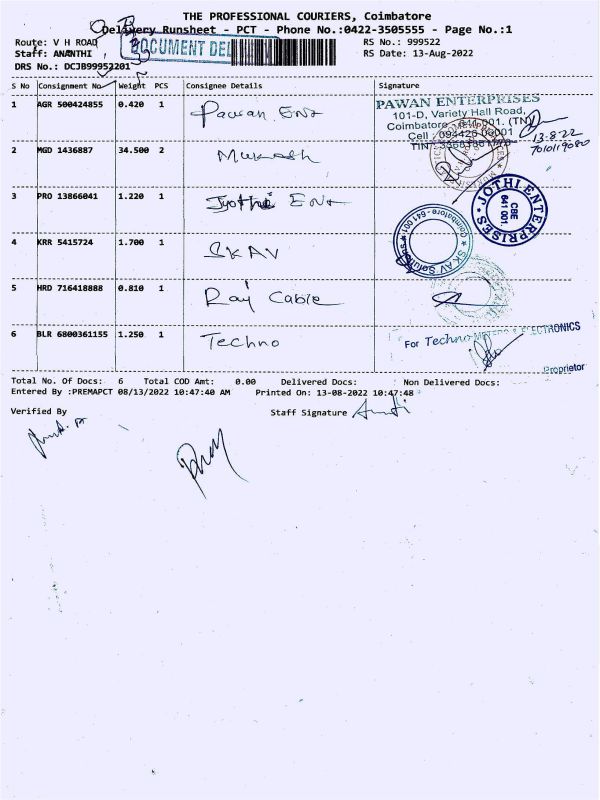 THE PROFESSIONAL COURIERS, Coimbatore
Delivery Runsheet - PCT - Phone No.:0422-3505555 - Page No.:1
Route: V H ROAD
RS No.: 999522
DOCUMENT DEL
Staff: ANANTHI
RS Date: 13-Aug-2022
DRS No.: DCJB99952201
S No Consignment No Weight PCS Consignee Details Signature
1 AGR 500424855 0.420 1 Pawan Ent
PAWAN ENTERPRISES
101-D, Variety Hall Road,
Coimbatore - 641 001. (TN)
Cell : 094426 03001
TIN:
13.8.22
7010119080
2 MGD 1436887 34.500 2 Mukesh
3 PRO 13866041 1.220 1 Jyothi Ent
JOTHI ENTERPRISES
CBE
641 001.
4 KRR 5415724 1.700 1 SKAV
SKAV Solutions
Coimbatore - 641 001
5 HRD 716418888 0.810 1 Raj Cable
6 BLR 6800361155 1.250 1 Techno
For Techno METERS & ELECTRONICS
Proprietor
Total No. Of Docs: 6 Total COD Amt: 0.00 Delivered Docs: Non Delivered Docs:
Entered By :PREMAPCT 08/13/2022 10:47:40 AM Printed On: 13-08-2022 10:47:48
Verified By
Staff Signature